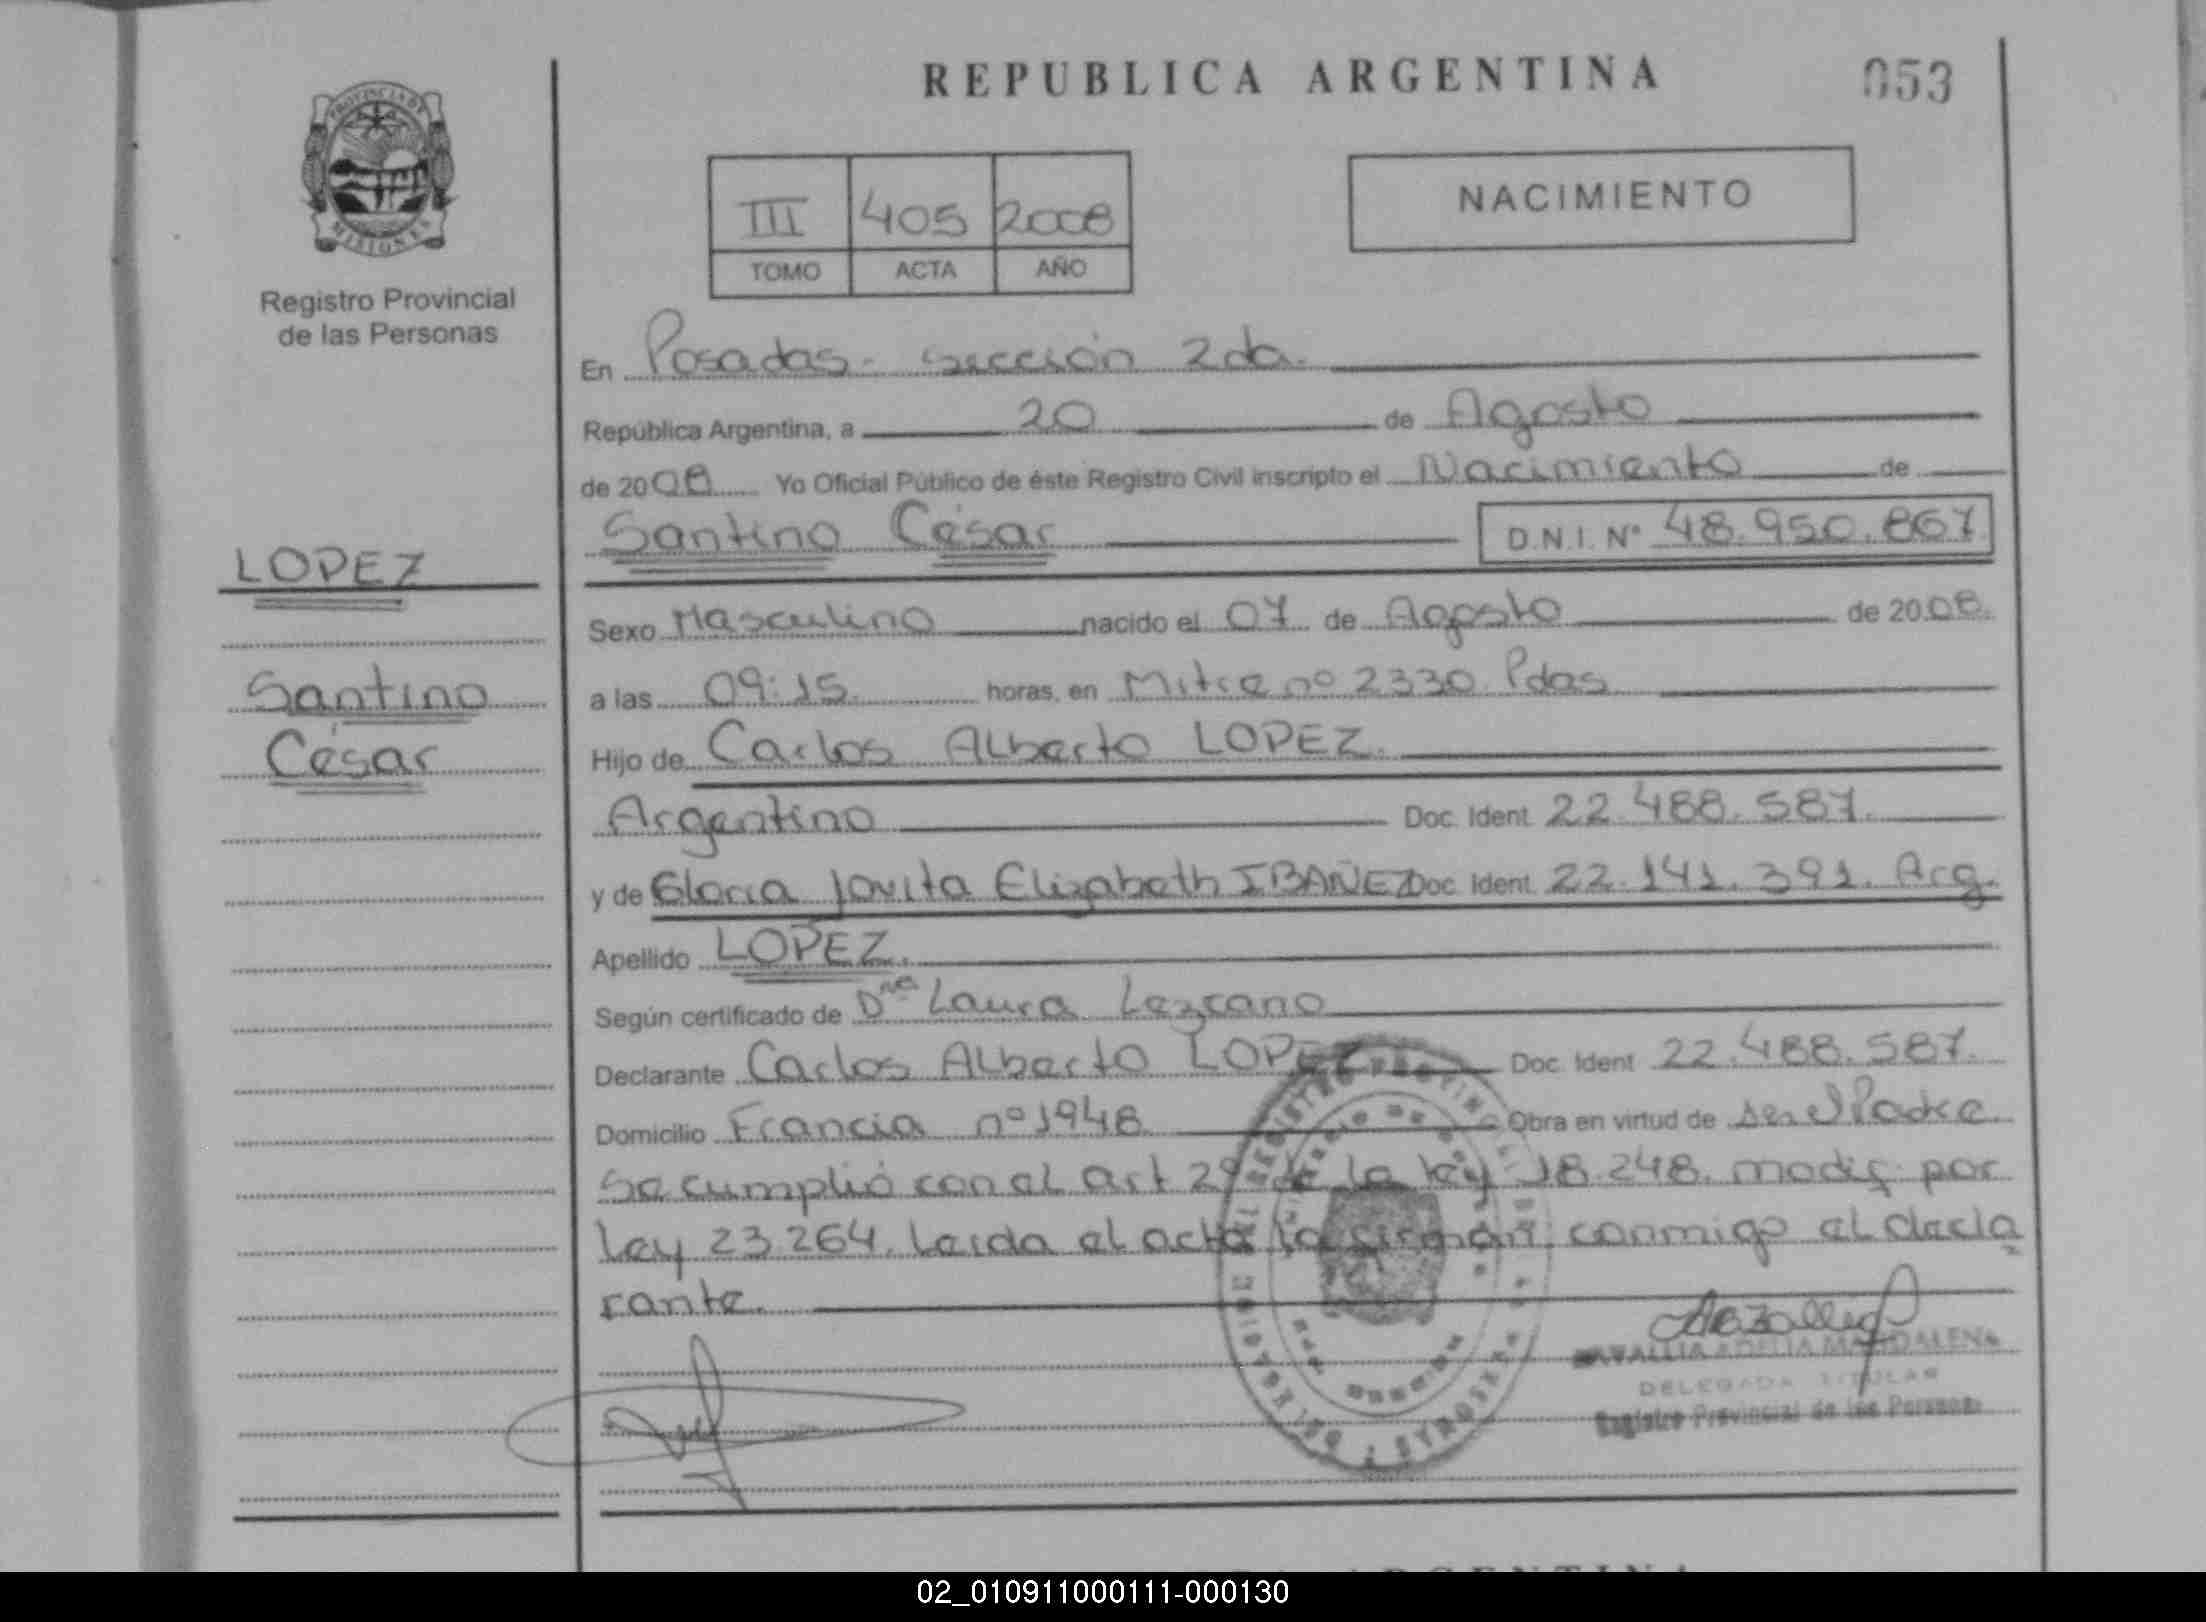 REPUBLICA ARGENTINA
053
PROVINCIA DE
MISIONES
Registro Provincial
de las Personas
III 405 2008
TOMO ACTA AÑO
NACIMIENTO
En Posadas - Sección 2da.
República Argentina, a 20 de Agosto
de 2008 Yo Oficial Público de éste Registro Civil inscripto el Nacimiento de
Santino César D.N.I. Nº 48.950.867
LOPEZ
Santino
César
Sexo Masculino nacido el 07 de Agosto de 2008.
a las 09:15. horas, en Mitre nº 2330. Pdas
Hijo de Carlos Alberto LOPEZ.
Argentino Doc. Ident. 22.488.587.
y de Gloria Jovita Elizabeth IBAÑEZ Doc. Ident. 22.141.391. Arg.
Apellido LOPEZ.
Según certificado de Dña Laura Lezcano
Declarante Carlos Alberto LOPEZ Doc. Ident. 22.488.587.
Domicilio Francia nº 1948 Obra en virtud de ser el Padre.
Se cumplió con el art 2º de la ley 18.248. modif. por
Ley 23.264. Leida el acta la firman conmigo el decla
rante.
ADELIA MAGDALENA
DELEGADA TITULAR
Registro Provincial de las Personas
02_010911000111-000130